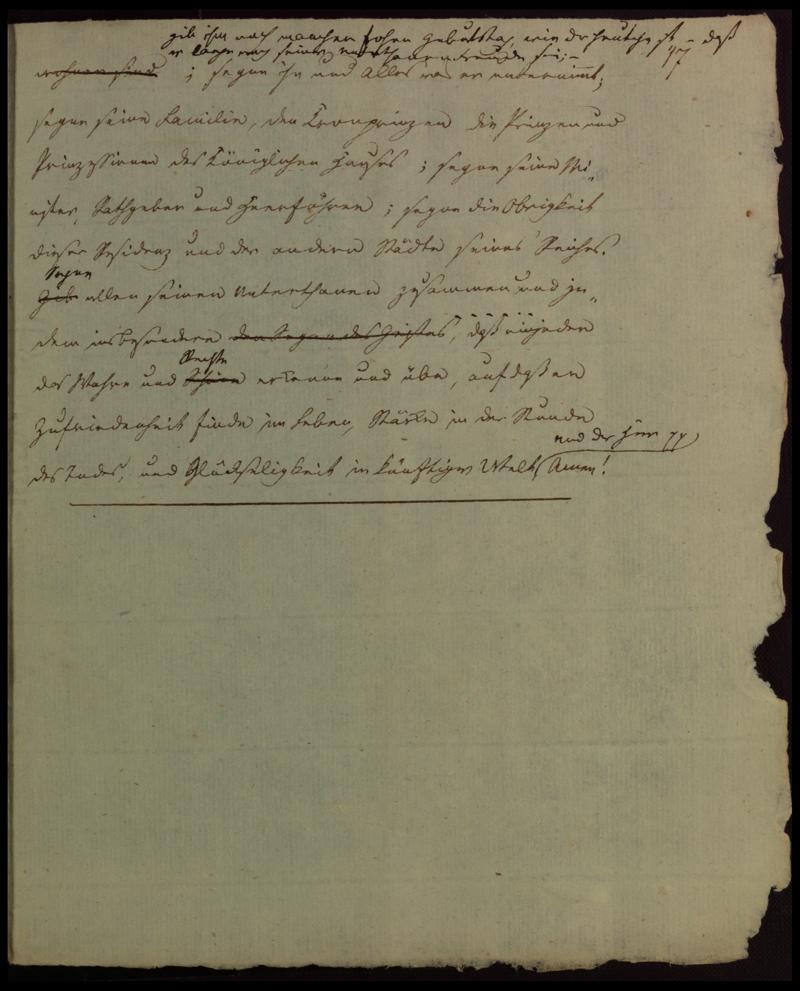 gib ihm noch manchen frohen Geburtstag, wie der heutige ist – daß
er lange noch seiner Unterthanen Freude sei; –
wohnen sind ; segne ihn und Alles was er unternimmt;
segne seine Familie, den Kronprinzen die Prinzen und
Prinzessinnen des Königlichen Hauses ; segne seine Mi„
nister, Rathgeber und Heerführer ; segne die Obrigkeit
dieser Residenz und der andern Städte seines Reiches.
Segne
Gib allen seinen Unterthanen zusammen und je„
dem insbesondere den Segen des Geistes, daß ein jeder
Rechte
das Wahre und Schöne erkenne und übe, auf daß er
Zufriedenheit finde im Leben, Stärke in der Stunde
und der Herr pp
des Todes, und Glückseligkeit in künftiger Welt, Amen!